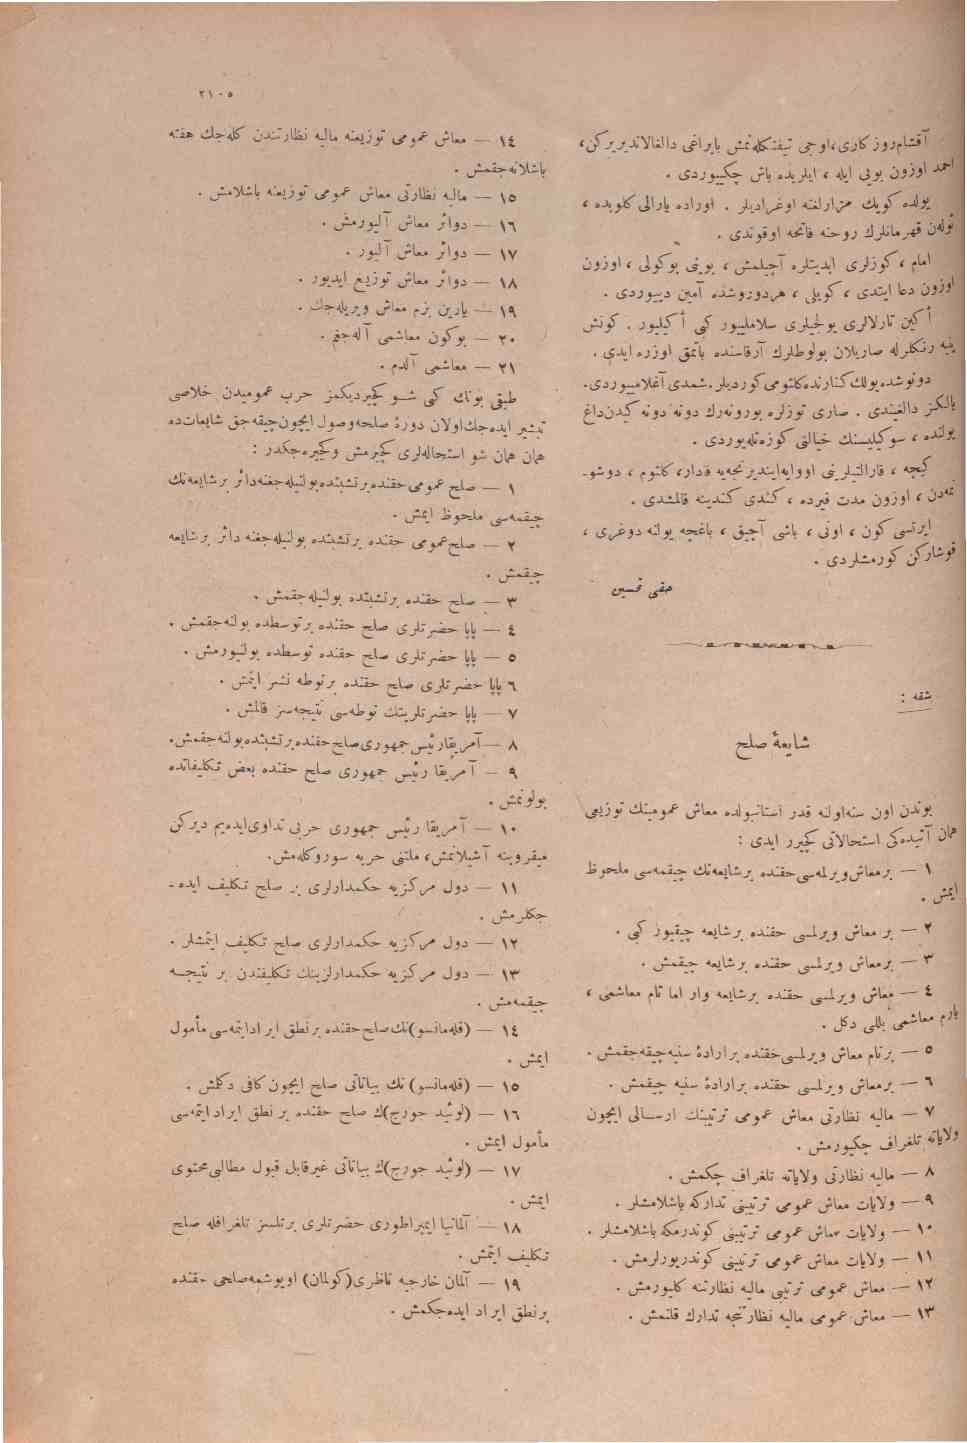 ٢١٠٥
آقشام روزكاری، اوجی تیفتكله نمش بایراغی دالغالاندیریركن،
احمد اوزون بویی ایله ، ایلریده باش چكییوردی .
یولده كویك مزارلغنه اوغرادیلر . اوراده یارالی كلوبده ،
ئولەن قهرمانلرك روحنه فاتحه اوقوندی .
امام ، كوزلری ابدیتلره آچیلمش ، بوینی بوكولی ، اوزون
اوزون دعا ایتدی ، كویلی ، هر دوروشده آمین دییوردی .
أكین تارلالری یولجیلری سلاملییور كبی أكیلیور . كونش
ینه رنكلرله صاریلان بولوطلرك آرقاسنده باتمق اوزره ایدی .
دونوشده یولك كنارنده كلثومی كوردیلر . شمدی آغلامییوردی .
یالكز دالغیندی . صاری توزلره بورونەرك دونه دونه كیدن داغ
یولنده ، سوكیلیسنك خیالنی كوزەتلەیوردی .
كیجه ، قارالتیلرینی اووایه ایندیرنجەیه قادار، كلثوم ، دوشو-
نمەدن ، اوزون مدت قیرده ، كندی كندینه قالمشدی .
ایرتسی كون ، اونی ، باشی آچیق ، باغچه یولنه دوغری ،
قوشاركن كورمشلردی .
حقی تحسین
شقه :
شایعهٔ صلح
بوندن اون سنه اولنه قدر استانبولده معاش عمومینك توزیعی
همان آتیدەكی استحالاتی كچیرر ایدی :
١ — بر معاش ویرلمەسی حقنده بر شایعەنك چیقمەسی ملحوظ
ایمش .
٢ — بر معاش ویرلمسی حقنده بر شایعه چیقیوز كبی .
٣ — بر معاش ویرلمسی حقنده بر شایعه چیقمش .
٤ — معاش ویرلمسی حقنده بر شایعه وار اما تام معاشمی ،
یارم معاشمی بللی دكل .
٥ — بر تام معاش ویرلمسی حقنده بر ارادهٔ سنیه چیقەجقمش .
٦ — بر معاش ویرلمسی حقنده بر ارادهٔ سنیه چیقمش .
٧ — مالیه نظارتی معاش عمومی ترتیبنك ارسالی ایچون
ولایاته تلغراف چكیورمش .
٨ — مالیه نظارتی ولایاته تلغراف چكمش .
٩ — ولایات معاش عمومی ترتیبنی تداركه باشلامشلر .
١٠ — ولایات معاش عمومی ترتیبنی كوندرمكه باشلامشلر .
١١ — ولایات معاش عمومی ترتیبنی كوندریورلرمش .
١٢ — معاش عمومی ترتیبی مالیه نظارتنه كلیورمش .
١٣ — معاش عمومی مالیه نظارتنجه تدارك قلنمش .
١٤ — معاش عمومی توزیعنه مالیه نظارتندن كلەجك هفته
باشلانەجقمش .
١٥ — مالیه نظارتی معاش عمومی توزیعنه باشلامش .
١٦ — دوائر معاش آلیورمش .
١٧ — دوائر معاش آلیور .
١٨ — دوائر معاش توزیع ایدیور .
١٩ — یارین بزم معاش ویریلەجك .
٢٠ — بوكون معاشمی آلەجغم .
٢١ — معاشمی آلدم .
طبقی بونك كبی شو كچیردیكمز حرب عمومیدن خلاصی
تبشیر ایدەجك اولان دورهٔ صلحه وصول ایچون چیقەجق شایعاتده
همان همان شو استحالەلری كچیرمش وكچیرەجكدر :
١ — صلح عمومی حقنده بر تشبثده بولنیلەجغنه دائر بر شایعەنك
چیقمەسی ملحوظ ایمش .
٢ — صلح عمومی حقنده بر تشبثده بولنیلەجغنه دائر بر شایعه
چیقمش .
٣ — صلح حقنده بر تشبثده بولنیلەجقمش .
٤ — پاپا حضرتلری صلح حقنده بر توسطده بولنەجقمش .
٥ — پاپا حضرتلری صلح حقنده توسطده بولنیورمش .
٦ پاپا حضرتلری صلح حقنده بر نوطه نشر ایتمش .
٧ — پاپا حضرتلرینك نوطەسی نتیجەسز قالمش .
٨ — آمریقا رئیس جمهوری صلح حقنده بر تشبثده بولنەجقمش .
٩ — آمریقا رئیس جمهوری صلح حقنده بعض تكلیفاتده
بولونمش .
١٠ — آمریقا رئیس جمهوری حربی تداوی ایدەیم دیركن
میقروبنه آشیلانمش، ملتنی حربه سوروكلەمش .
١١ — دول مركزیه حكمدارلری بر صلح تكلیف ایدە-
جكلرمش .
١٢ — دول مركزیه حكمدارلری صلح تكلیف ایتمشلر .
١٣ — دول مركزیه حكمدارلرینك تكلیفندن بر نتیجه
چیقمەمش .
١٤ — (قلەمانسو)نك صلح حقنده بر نطق ایراد ایتمەسی مأمول
ایمش .
١٥ — (قلەمانسو) نك بیاناتی صلح ایچون كافی دكلمش .
١٦ — (لوئید جورج)ك صلح حقنده بر نطق ایراد ایتمەسی
مأمول ایمش .
١٧ — (لوئید جورج)ك بیاناتی غیر قابل قبول مطالبی محتوی
ایمش .
١٨ — آلمانیا ایمپراطوری حضرتلری برتلسز تلغرافله صلح
تكلیف ایتمش .
١٩ — آلمان خارجیه ناظری (كولمان) اویوشمه صلحی حقنده
بر نطق ایراد ایدەجكمش .